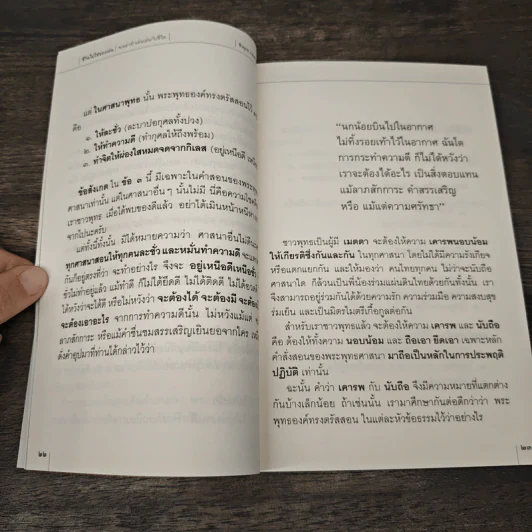 แต่ ในศาสนาพุทธ นั้น พระพุทธองค์ทรงตรัสสอนไว้
คือ
๑. ให้ละชั่ว (ละบาปอกุศลทั้งปวง)
๒. ให้ทำความดี (ทำกุศลให้ถึงพร้อม)
๓. ทำจิตให้ผ่องใสหมดจดจากกิเลส (อยู่เหนือดี
ข้อสังเกต ใน ข้อ ๓ นี้ มีเฉพาะในคำสอนของพระพุทธ
ศาสนาเท่านั้น แต่ในศาสนาอื่นๆ นั้นไม่มี นี่คือความ
เราชาวพุทธ เมื่อได้พบของดีแล้ว อย่าได้เมินหน้าหนี
จากไปนะครับ
แต่ทั้งนี้ทั้งนั้น มิได้หมายความว่า ศาสนาอื่นไม่ดี
ทุกศาสนาสอนให้ทุกคนละชั่ว และหมั่นทำความดี
กันก็อยู่ตรงที่ว่า จะทำอย่างไร จึงจะ อยู่เหนือดีเหนือชั่ว
ชั่วไม่ทำอยู่แล้ว แม้ทำดี ก็ไม่ได้ยึดดี ไม่ได้ติดดี
หวังว่าจะได้ดี หรือไม่หวังว่า จะต้องได้ จะต้องมี
จะต้องเอาอะไร จากการทำความดีนั้น ไม่หวังแม้แต่
ลาภสักการะ หรือแม้คำชื่นชมสรรเสริญเยินยอจากใคร
ดังคำอุปมาที่ท่านได้กล่าวไว้ว่า
๒๒
“นกน้อยบินไปในอากาศ
ไม่ทิ้งรอยเท้าไว้ในอากาศ ฉันใด
การกระทำความดี ก็ไม่ได้หวังว่า
เราจะต้องได้อะไร เป็นสิ่งตอบแทน
แม้ลาภสักการะ คำสรรเสริญ
หรือ แม้แต่ความศรัทธา”
ชาวพุทธเป็นผู้มี เมตตา จะต้องให้ความ เคารพนอบน้อม
ให้เกียรติซึ่งกันและกัน ในทุกศาสนา โดยไม่ได้มีความรังเกียจ
หรือแตกแยกกัน และให้มองว่า คนไทยทุกคน ไม่ว่าจะนับถือ
ศาสนาใด ก็ล้วนเป็นพี่น้องร่วมแผ่นดินไทยด้วยกันทั้งนั้น เรา
จึงสามารถอยู่ร่วมกันได้ด้วยความรัก ความร่วมมือ ความสงบสุข
ร่มเย็น และเป็นมิตรไมตรีเกื้อกูลต่อกัน
สำหรับเราชาวพุทธแล้ว จะต้องให้ความ เคารพ และ นับถือ
คือ ต้องให้ทั้งความ นอบน้อม และ ถือเอา ยึดเอา เฉพาะหลัก
คำสั่งสอนของพระพุทธศาสนา มาถือเป็นหลักในการประพฤติ
ปฏิบัติ เท่านั้น
ฉะนั้น คำว่า เคารพ กับ นับถือ จึงมีความหมายที่แตกต่าง
กันบ้างเล็กน้อย ถ้าเช่นนั้น เรามาศึกษากันต่อดีกว่าว่า พระ
พุทธองค์ทรงตรัสสอน ในแต่ละหัวข้อธรรมไว้ว่าอย่างไร
๒๓